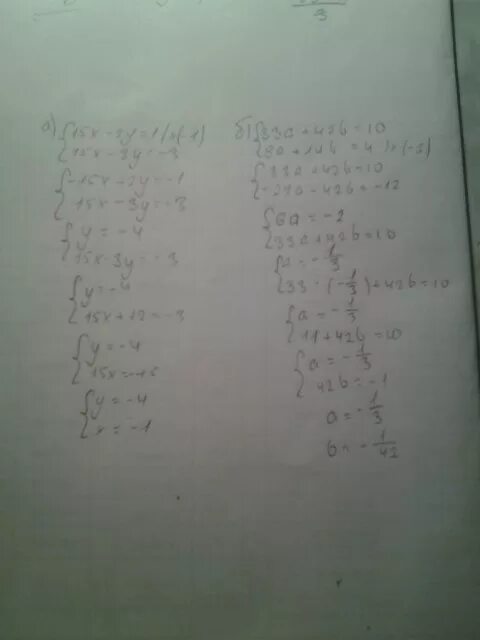 3
а) {15x - 2y = 1 | ×(-1)
{15x - 3y = -3
{-15x - 2y = -1
{15x - 3y = -3
{y = -4
{15x - 3y = -3
{y = -4
{15x + 12 = -3
{y = -4
{15x = -15
{y = -4
{x = -1
б) {33a + 42b = 10
{9a + 14b = 4 | ×(-3)
{33a + 42b = 10
{-27a - 42b = -12
{6a = -2
{33a + 42b = 10
{a = -1/3
{33 · (-1/3) + 42b = 10
{a = -1/3
{11 + 42b = 10
{a = -1/3
{42b = -1
a = -1/3
b = -1/42